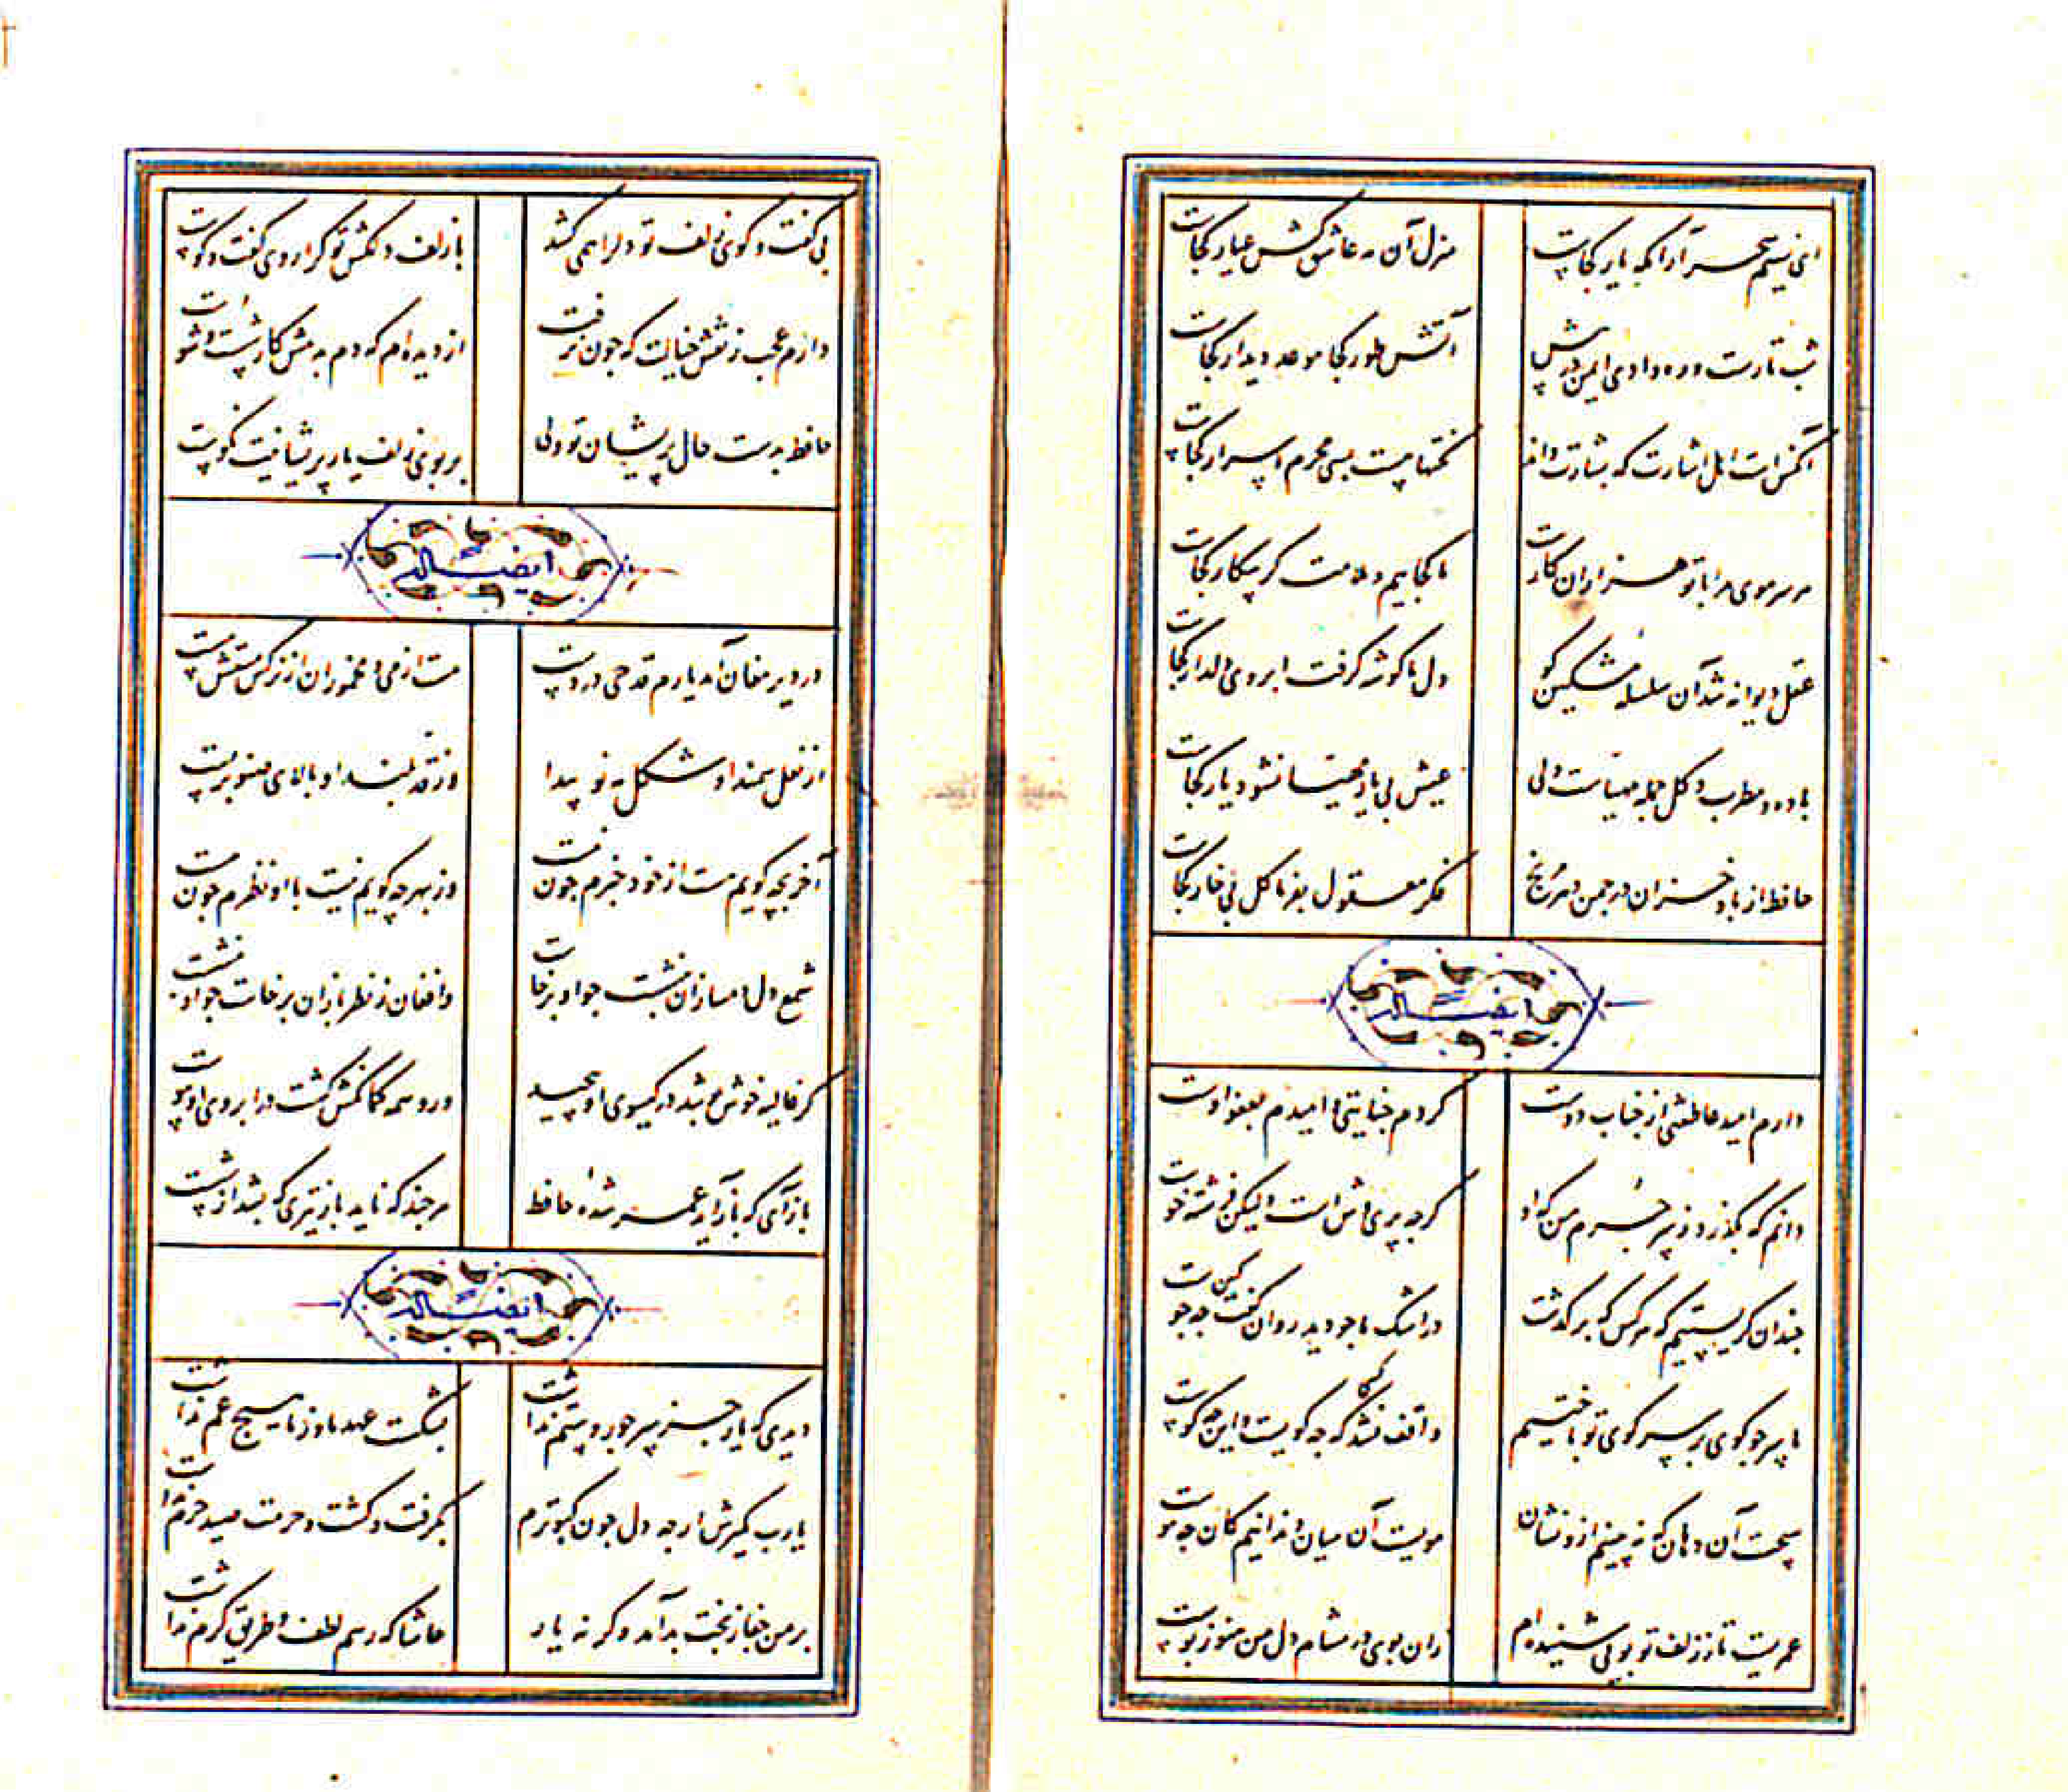 ای نسیم سحر آرامگه یار کجاست
منزل آن مه عاشق کش عیار کجاست
شب تارست و ره وادی ایمن در پیش
آتش طور کجا موعد دیدار کجاست
آنکس است اهل اشارت که بشارت داند
نکتها هست بسی محرم اسرار کجاست
هر سر موی مرا با تو هزاران کارست
ما کجاییم و ملامت گر بیکار کجاست
عقل دیوانه شد آن سلسله مشکین کو
دل ما گوشه گرفت ابروی دلدار کجاست
باده و مطرب و گل جمله مهیاست ولی
عیش بی یار مهیا نشود یار کجاست
حافظ از باد خزان در چمن دهر مرنج
فکر معقول بفرما گل بی خار کجاست
ایضاً له
دارم امید عاطفتی از جناب دوست
کردم جنایتی و امیدم بعفو اوست
دانم که بگذرد ز سر جرم من که او
گرچه پری وش است ولیکن فرشته خوست
چندان گریستیم که هر کس که بر گذشت
در اشک ما چو دید روان گفت کین چه جوست
ما سر چو گوی بر سر کوی تو باختیم
واقف نشد کسی که چه گویست و این چه کوست
هیچست آن دهان که نبینم ازو نشان
مویست آن میان و ندانم که آن چه موست
عمریست تا ز زلف تو بویی شنیده‌ام
زان بوی در مشام دل من هنوز بوست
بی گفت و گوی زلف تو دل را همی کشد
با زلف دلکش تو کرا روی گفت و گوست
دارم عجب ز نقش خیالت که چون نرفت
از دیده‌ام که دم به دمش کار شست و شوست
حافظ بدست حال پریشان تو ولی
بر بوی زلف یار پریشانیت نکوست
ایضاً له
در دیر مغان آمد یارم قدحی در دست
مست از می و میخواران از نرگس مستش مست
از نعل سمند او شکل مه نو پیدا
وز قد بلند او بالای صنوبر پست
آخر بچه گویم هست از خود خبرم چون نیست
وز بهر چه گویم نیست با او نظرم چون هست
شمع دل دمسازان بنشست چو او برخاست
و افغان ز نظر بازان برخاست چو او بنشست
گر غالیه خوش بو شد در گیسوی او پیچید
ور وسمه کمانکش گشت در ابروی او پیوست
بازآی که بازآید عمر شده حافظ
هر چند که ناید باز تیری که بشد از شست
ایضاً له
دیدی که یار جز سر جور و ستم نداشت
بشکست عهد ما وز ما هیچ غم نداشت
یارب مگیرش ار چه دل چون کبوترم
بگرفت و کشت و حرمت صید حرم نداشت
بر من جفا ز بخت بد آمد وگرنه یار
حاشا که رسم لطف و طریق کرم نداشت